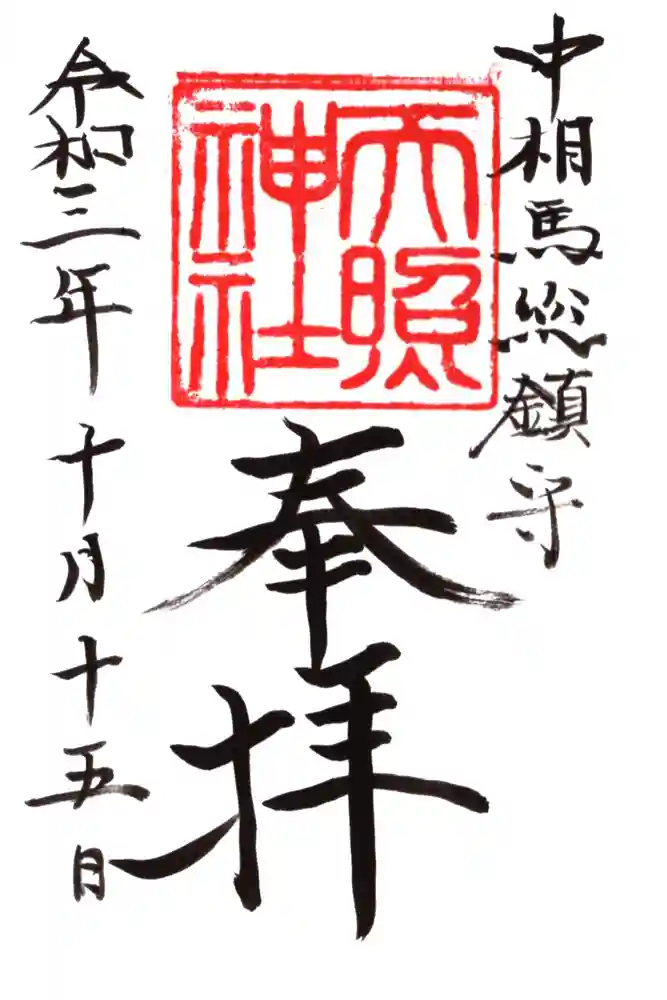 中相馬総鎮守
天照
神社
奉拝
令和三年十月十五日